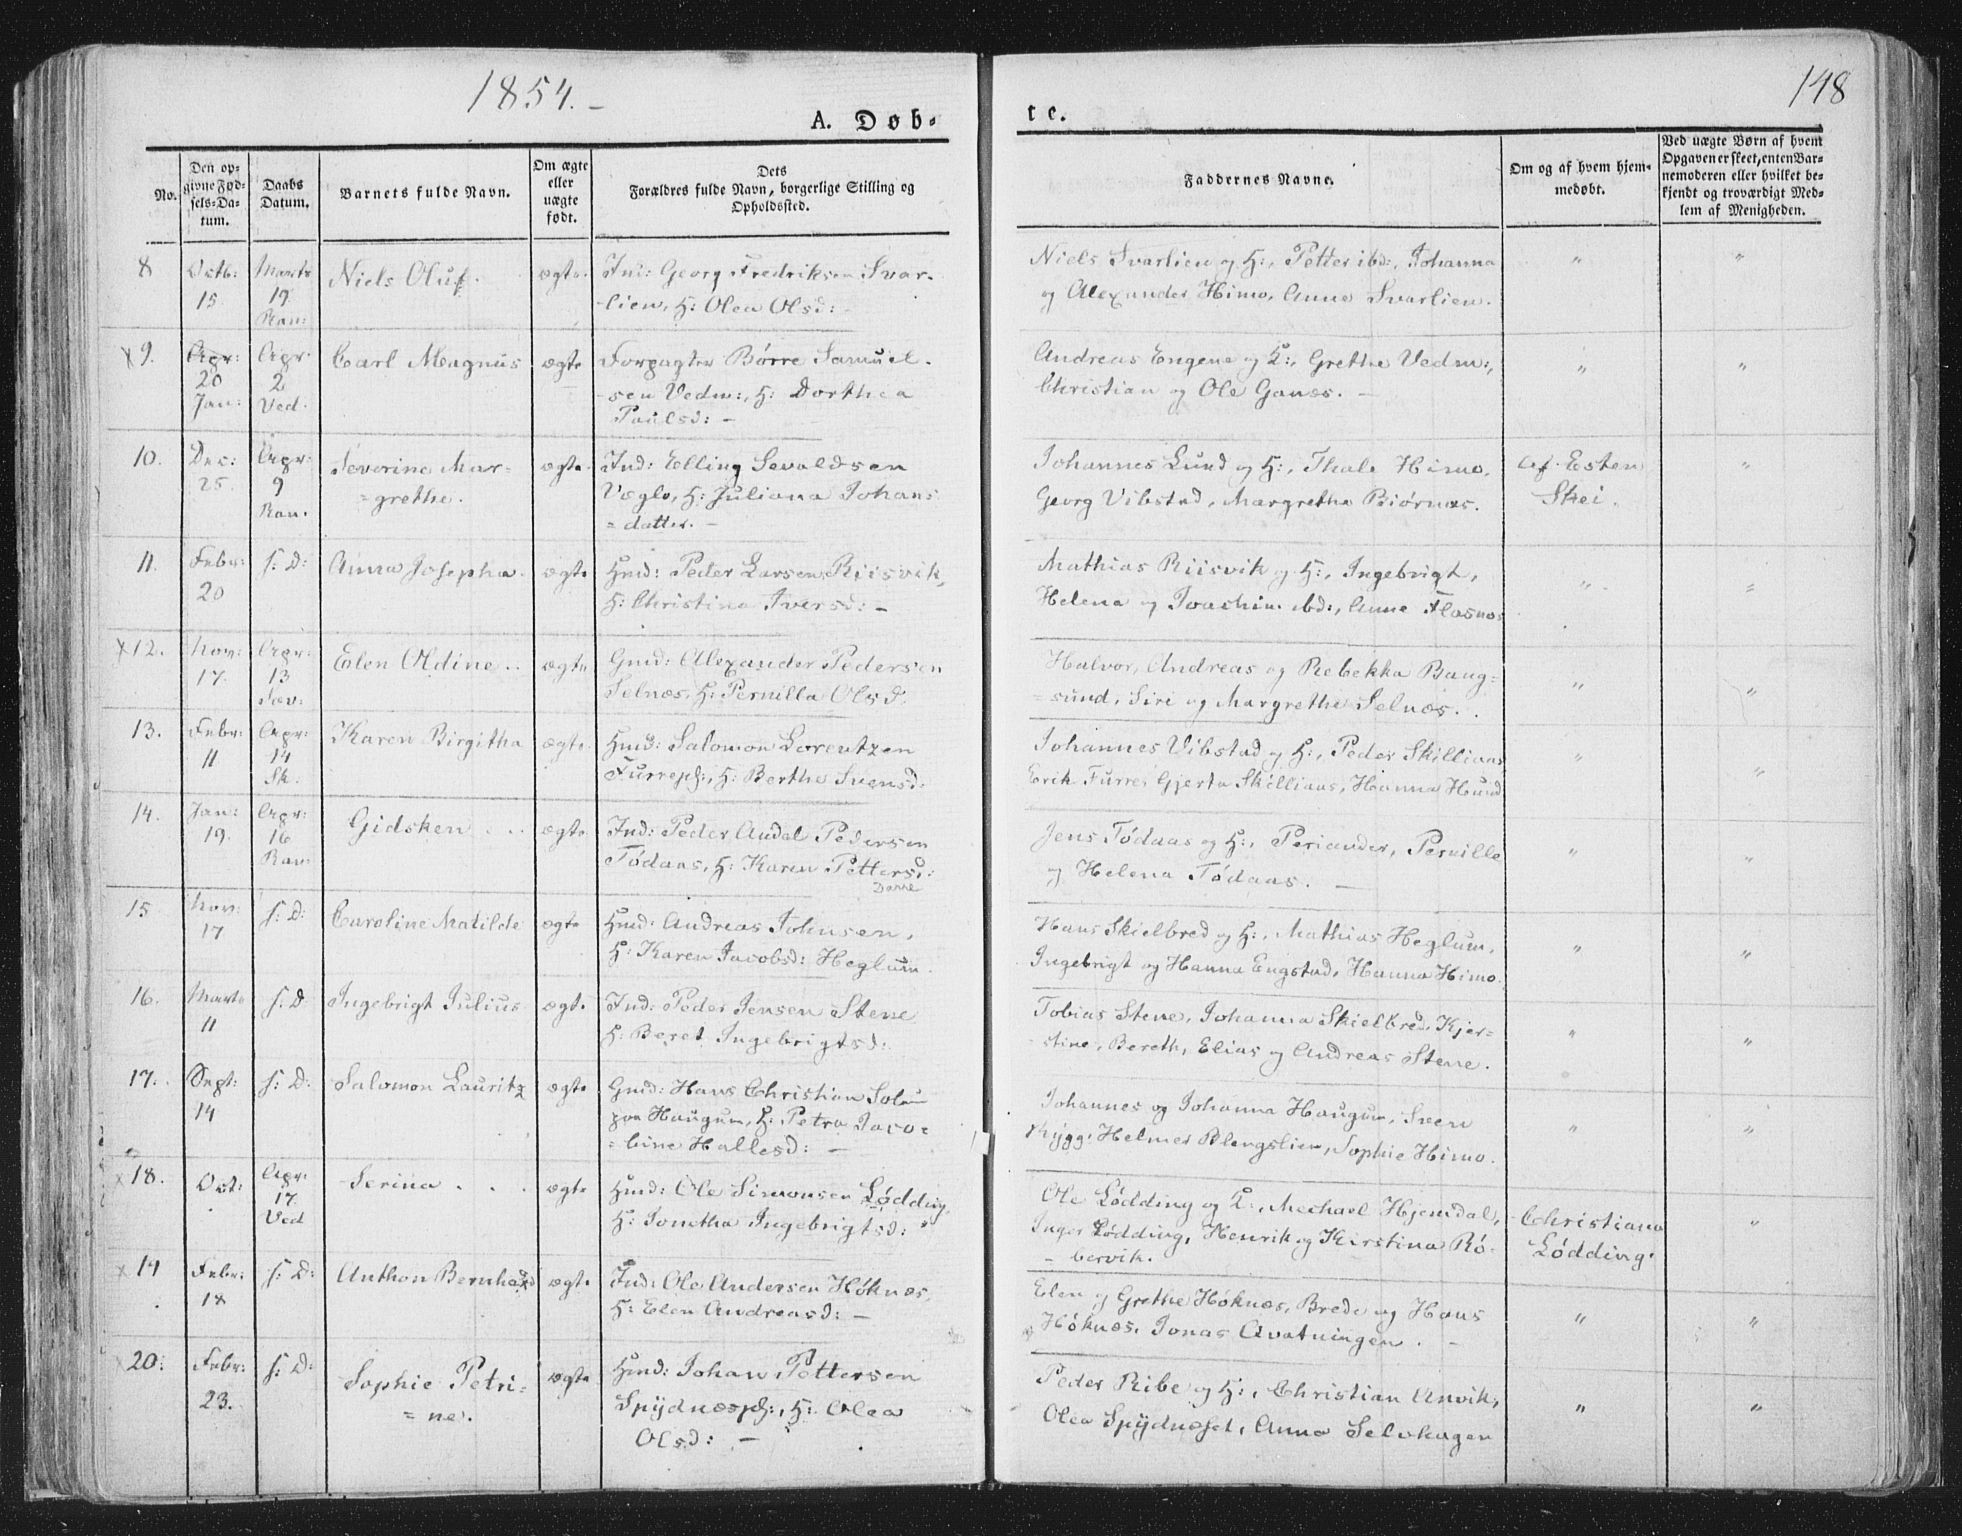 1854.-
148
A. Døb-
te.
No.
Den op-
givne Fød-
sels-Da-
tum.
Daabs
Datum.
Barnets fulde Navn.
Om ægte
eller
uægte
født.
Dets
Forældres fulde Navn, borgerlige Stilling og
Opholdssted.
Faddernes Navne.
Om og af hvem hjem-
medøbt.
Ved uægte Børn af hvem
Opgaven er skeet, enten Bar-
nemoderen eller hvilket be-
kjendt og troværdigt Med-
lem af Menigheden.
8
Octb:
15
Marts
19
Ran:
Niels Oluf.
ægte
Ind: Georg Fredriksen Svar-
lien, H: Olea Olsd: -
Niels Svarlien og H:, Petter ibd:, Johanna
og Alexander Himo, Anne Svarlien.
"
"
x 9.
Apr:
20
Jan:
Apr:
2
Ved.
Carl Magnus
ægte
Forpagter Børre Samuel-
sen Vedm:, H: Dorthea
Paulsd: -
Andreas Engene og H:, Grethe Vedm:,
Christian og Ole Ganæs. -
"
"
10.
Dec:
25.
Apr:
9
Ran.
Severine Mar=
=grethe.
ægte
Ind: Elling Sevaldsen
Vegle, H: Juliana Johans
=datter. -
Johannes Lund og H:, Thale Himo,
Georg Vibstad, Margrethe Biørnæs.
af. Esten
Skei.
"
11.
Febr:
20
s: D:
Anna Josepha.
ægte
Hmd: Peder Larsen Riisvik,
H: Christina Iversd: -
Mathias Riisvik og H:, Ingebrigt,
Helena og Joachim ibd:, Anne Flasnæs
"
"
x12.
Nov:
17.
Apr:
13
Sæv:
Elen Oldine..
ægte
Gmd: Alexander Pedersen
Selnæs, H: Pernilla Olsd.
Halvor, Andreas og Rebekka Bang=
=sund, Siri og Margrethe Selnæs.
"
"
13.
Febr:
11
Apr:
14
Sk.
Karen Birgitha
ægte
Hmd: Salomon Lorentzen
Furrepl:, H: Berthe Svensd:
Johannes Vibstad og H:, Peder Skilliaas
Erik Furre, Gjerta Skilliaas, Hanna Hund
"
"
14.
Jan:
19.
Apr:
16
Ran:
Gidsken . ..
ægte
Ind: Peder Andal Pedersen
Tödaas, H: Karen Pettersd:
Jens Tödaas og H:, Periander, Pernille
og Helena Tödaas. -
"
"
15
Nov:
17
s: D:
Caroline Matilde
ægte
Hmd: Andreas Johnsen,
H: Karen Jacobsd: Heglum.
Hans Skielbred og H:, Mathias Heglum,
Ingebrigt og Hanna Engstad, Hanna Himo.
"
"
16.
Marts
11
s: D
Ingebrigt Julius
ægte
Ind: Peder Jensen Stene
H: Beret Ingebrigtsd:
Tobias Stene, Johanna Skielbred, Kjer=
-stine, Bereth, Elias og Andreas Stene.
"
"
17.
Sept:
14
s: D:
Salomon Lauritz
ægte
Gmd: Hans Christian Solum
paa Haugum, H: Petra Jaco=
=bine Hallesd: -
Johannes og Johanna Haugum, Sven
Rygg, Helmer Blengslien, Sophie Himo.
"
"
x 18.
Oct:
Apr:
17.
Ved
Serina . . .
ægte
Hmd: Ole Simonsen Lødding,
H: Jonetha Ingebrigtsd: "
Ole Lödding og H:, Mechael Hjemdal,
Inger Lödding, Henrik og Kirstina Rö-
-bervik.
Christiana
Lödding.
"
x 19
Febr:
18
s: D:
Anthon Bernhard
ægte
Ind: Ole Andersen Höknæs,
H: Elen Andreasd: -
Elen og Grethe Höknæs, Brede og Hans
Höknæs, Jonas Avatningen. -
"
"
20:
Febr:
23.
s: D:
Sophie Petri=
=ne.
ægte
Hmd: Johan Pettersen
Spydnæspl:, H: Olea
Olsd: -
Peder Ribe og H:, Christian Anvik,
Olea Spydnæset, Anna Selvhagen
"
"